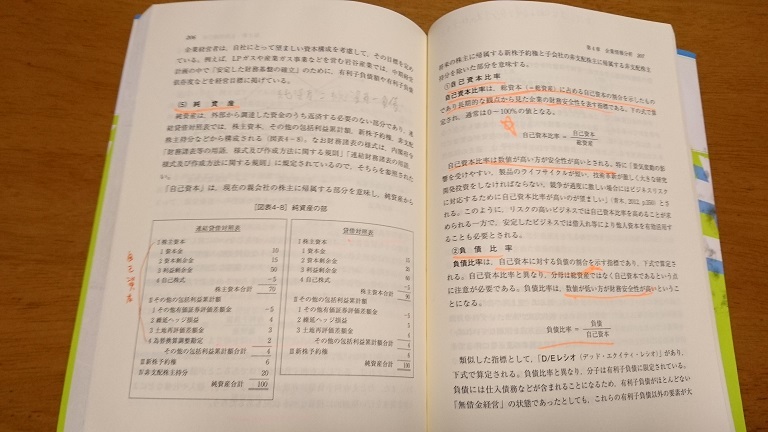 206
企業経営者は、自社にとって望ましい資本構成を考慮して、その目標を定め
ている。例えば、LPガスや産業ガス事業などを営む岩谷産業では、中期経営
計画の中で「安定した財務基盤の確立」のために、有利子負債額や有利子負債
依存度などを経営目標に掲げている。
(5) 純資産
純資産は、外部から調達した資金のうち返済する必要のない部分であり、連
結貸借対照表では、株主資本、その他の包括利益累計額、新株予約権、非支配
株主持分などから構成される(図表4-8)。なお財務諸表の様式は、内閣府令
「財務諸表等の用語、様式及び作成方法に関する規則」「連結財務諸表の用語、
様式及び作成方法に関する規則」に規定されているので、そちらを参照された
い。
「自己資本」は、現在の親会社の株主に帰属する部分を意味し、純資産から
[図表4-8] 純資産の部
連結貸借対照表
Ⅰ株主資本
1資本金 10
2資本剰余金 15
3利益剰余金 50
4自己株式 -5
株主資本合計 70
Ⅱその他の包括利益累計額
1その他有価証券評価差額金 -5
2繰延ヘッジ損益 4
3土地再評価差額金 3
4為替換算調整勘定 2
その他の包括利益累計額合計 4
Ⅲ新株予約権 6
Ⅳ非支配株主持分 20
純資産合計 100
自己資本
貸借対照表
Ⅰ株主資本
1資本金
2資本剰余金 15
3利益剰余金
4自己株式 -5
株主資本合計 90
Ⅱその他の包括利益累計額
1その他有価証券評価差額金 -5
2繰延ヘッジ損益 4
3土地再評価差額金 3
その他の包括利益累計額合計
Ⅲ新株予約権 8
純資産合計 100
第4章 企業情報分析 207
将来の株主に帰属する新株予約権と子会社の非支配株主に帰属する非支配株主
持分を除いた部分を意味する。
①自己資本比率
自己資本比率は、総資本(=総資産)に占める自己資本の割合を示したもの
であり長期的な観点から見た企業の財務安全性を表す指標である。下の式で算
定され、通常は0~100%の値となる。
自己資本比率=自己資本
総資産
自己資本比率は数値が高い方が安全性が高いとされる。特に「景気変動の影
響を受けやすい、製品のライフサイクルが短い、技術革新が激しく大きな研究
開発投資をしなければならない、競争が過度に激しい場合にはビジネスリスク
に対応するために自己資本比率が高いのが望ましい」(青木, 2012, p.250)とさ
れる。このように、リスクの高いビジネスでは自己資本比率を高めることが求
められる一方で、安定したビジネスでは借入れ等により他人資本を有効活用す
ることも必要とされる。
②負債比率
負債比率は、自己資本に対する負債の割合を示す指標であり、下式で算定さ
れる。自己資本比率と異なり、分母は総資産ではなく自己資本であるという点
に注意が必要である。負債比率は、数値が低い方が財務安全性が高いというこ
とになる。
負債比率=負債
自己資本
類似した指標として、「D/Eレシオ(デッド・エクイティ・レシオ)」があり、
下式で算定される。負債比率と異なり、分子は有利子負債に限定されている。
負債には仕入債務などが含まれることになるため、有利子負債がほとんどない
「無借金経営」の状態であったとしても、これらの有利子負債以外の要素が大